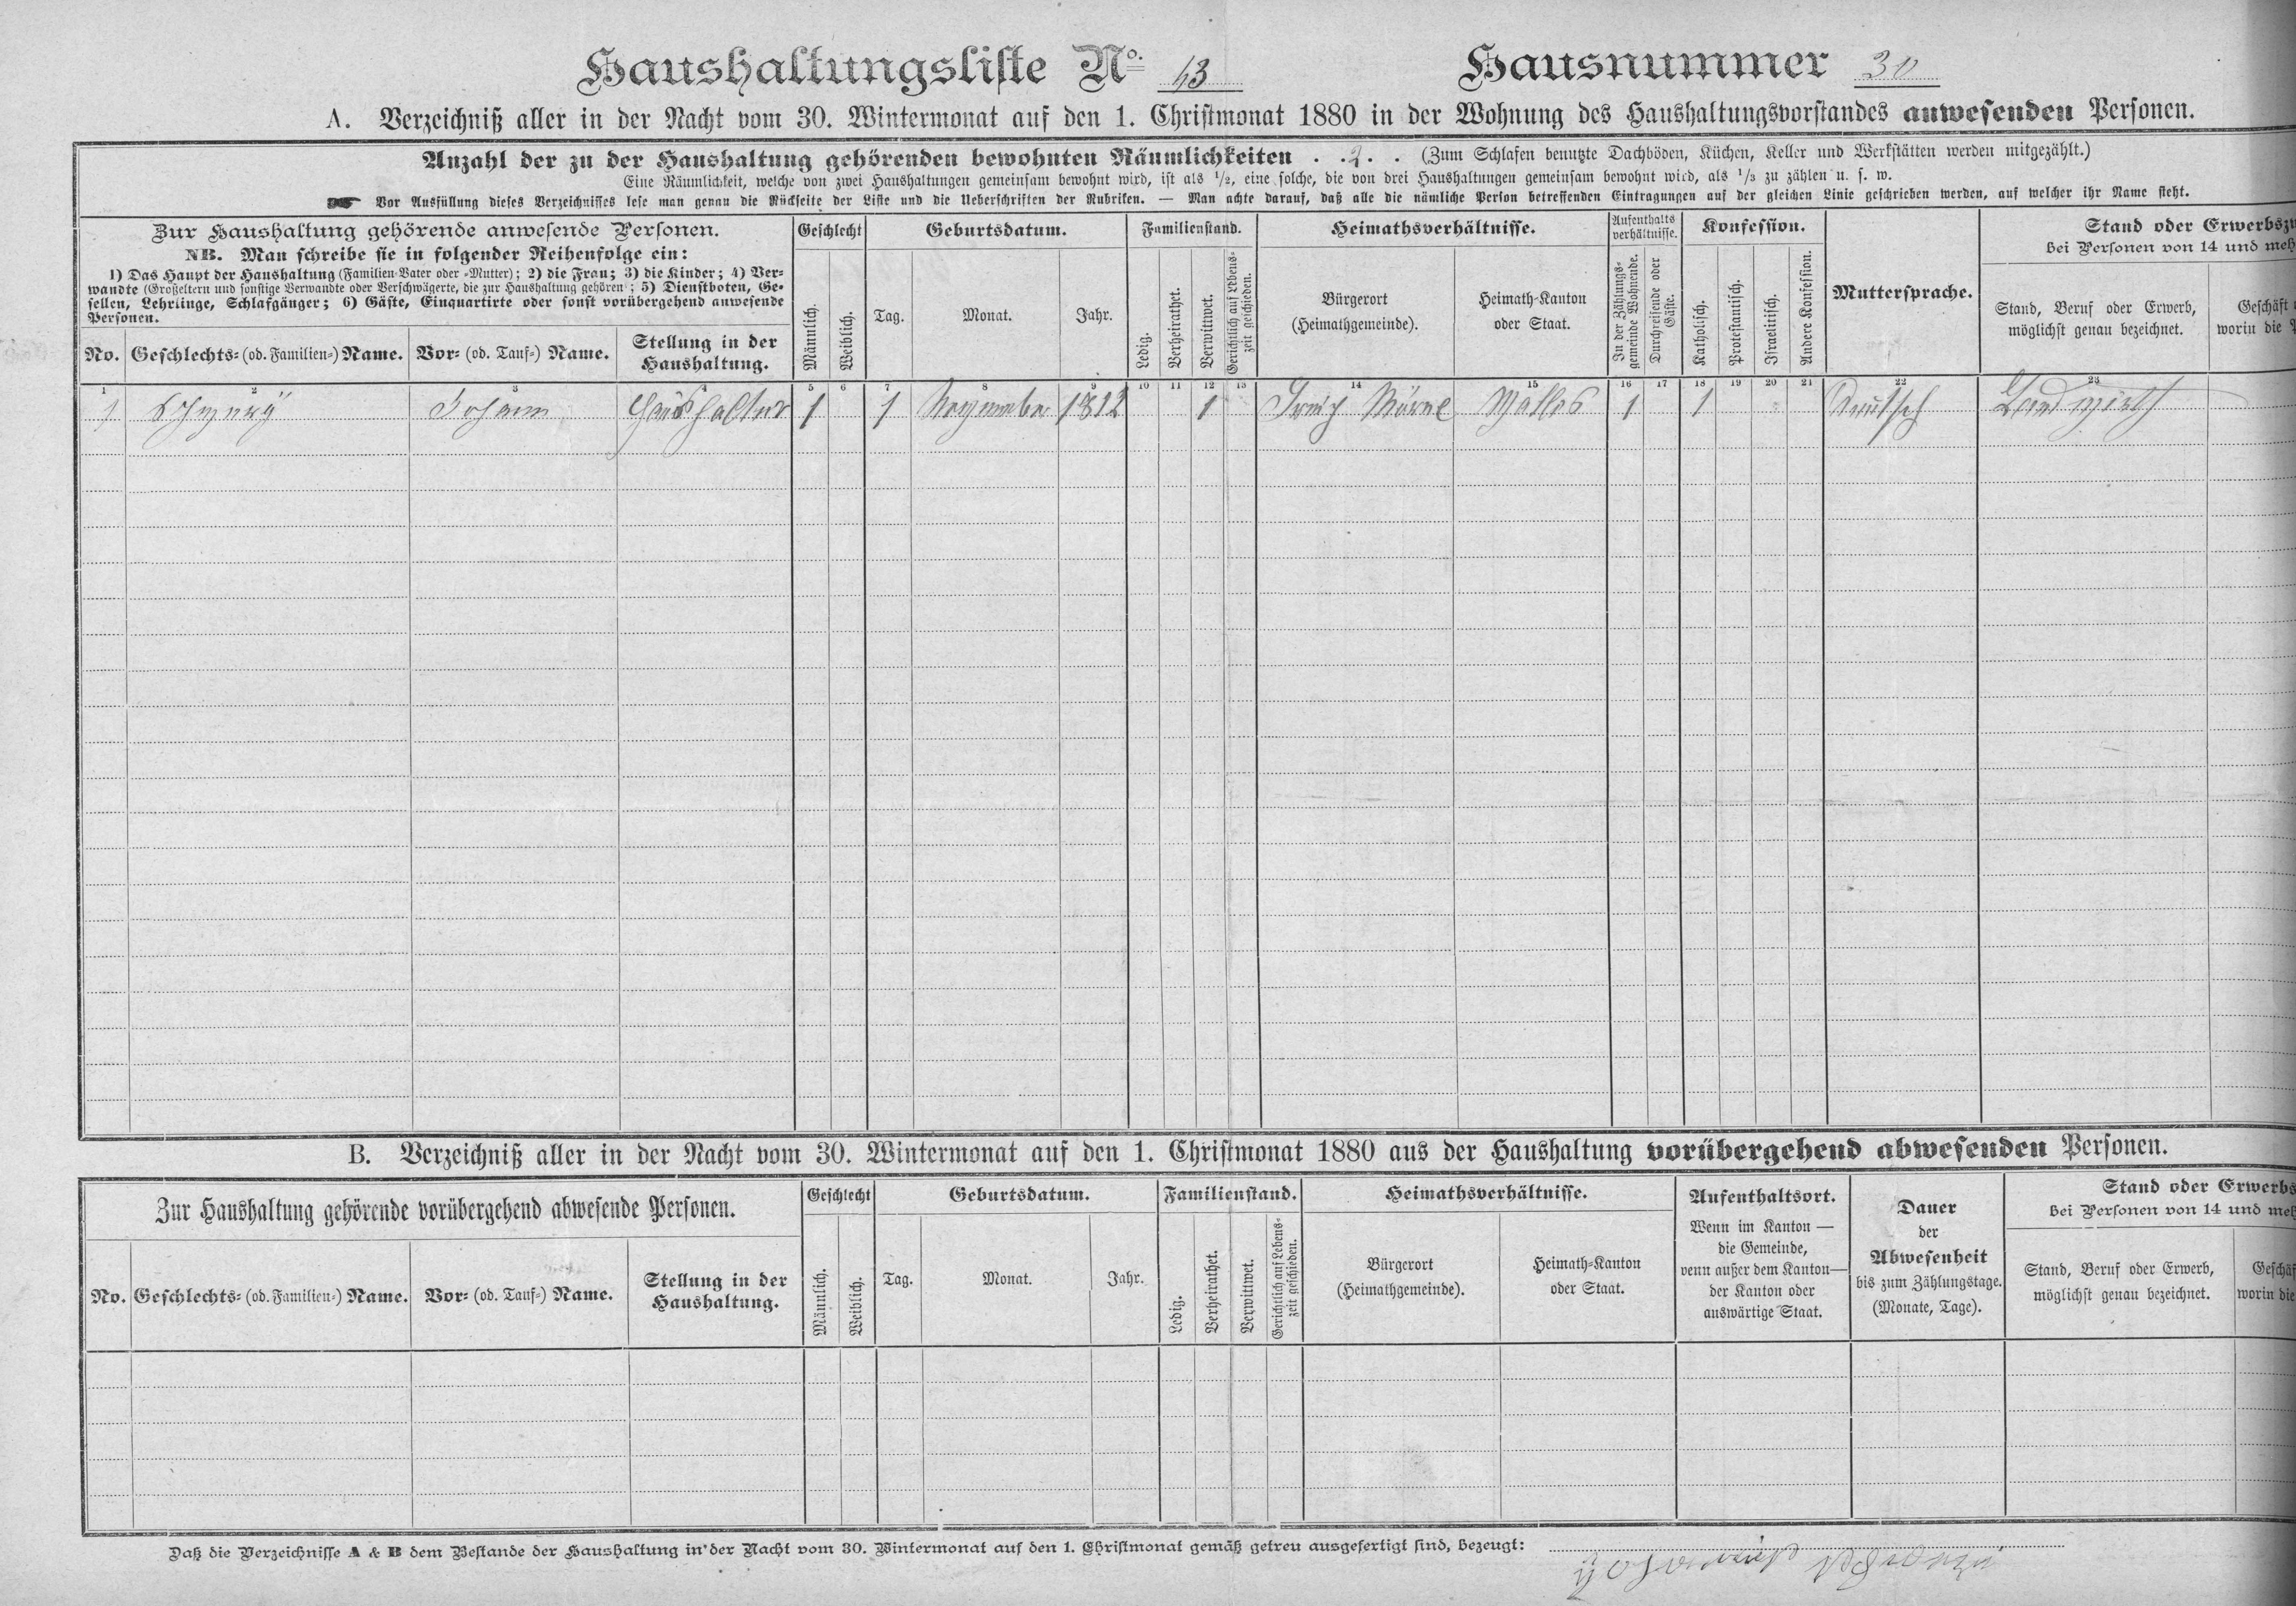 Haushaltungsliste No. 43 Hausnummer 30
A. Verzeichniß aller in der Nacht vom 30. Wintermonat auf den 1. Christmonat 1880 in der Wohnung des Haushaltungsvorstandes anwesenden Personen.
Anzahl der zu der Haushaltung gehörenden bewohnten Räumlichkeiten . . 2 . . (Zum Schlafen benutzte Dachböden, Küchen, Keller und Werkstätten werden mitgezählt.)
Eine Räumlichkeit, welche von zwei Haushaltungen gemeinsam bewohnt wird, ist als 1/2, eine solche, die von drei Haushaltungen gemeinsam bewohnt wird, als 1/3 zu zählen u. s. w.
Vor Ausfüllung dieses Verzeichnisses lese man genau die Rückseite der Liste und die Ueberschriften der Rubriken. — Man achte darauf, daß alle die nämliche Person betreffenden Eintragungen auf der gleichen Linie geschrieben werden, auf welcher ihr Name steht.
Zur Haushaltung gehörende anwesende Personen.
NB. Man schreibe sie in folgender Reihenfolge ein:
1) Das Haupt der Haushaltung (Familien-Vater oder -Mutter); 2) die Frau; 3) die Kinder; 4) Ver-
wandte (Großeltern und sonstige Verwandte oder Verschwägerte, die zur Haushaltung gehören); 5) Dienstboten, Ge-
sellen, Lehrlinge, Schlafgänger; 6) Gäste, Einquartirte oder sonst vorübergehend anwesende
Personen.
No. Geschlechts- (od. Familien-) Name. Vor- (od. Tauf-) Name. Stellung in der
Haushaltung.
Geschlecht
Männlich. Weiblich.
Geburtsdatum.
Tag. Monat. Jahr.
Familienstand.
Ledig. Verheirathet. Verwittwet. Gerichtlich auf Lebens-
zeit geschieden.
Heimathsverhältnisse.
Bürgerort
(Heimathgemeinde).
Heimath-Kanton
oder Staat.
Aufenthalts
verhältnisse.
In der Zählungs-
gemeinde Wohnende.
Durchreisende oder
Gäste.
Konfession.
Katholisch. Protestantisch. Israelitisch. Andere Konfession.
Muttersprache.
Stand oder Erwerbs
bei Personen von 14 und
Stand, Beruf oder Erwerb,
möglichst genau bezeichnet.
Geschäft
worin die
1 2 3 4 5 6 7 8 9 10 11 12 13 14 15 16 17 18 19 20 21 22 23
1 Johann Haushalter 1 1 November 1812 1 Mörel Wallis 1 1 Deutsch Landwirth
B. Verzeichniß aller in der Nacht vom 30. Wintermonat auf den 1. Christmonat 1880 aus der Haushaltung vorübergehend abwesenden Personen.
Zur Haushaltung gehörende vorübergehend abwesende Personen.
No. Geschlechts- (od. Familien-) Name. Vor- (od. Tauf-) Name. Stellung in der
Haushaltung.
Geschlecht
Männlich. Weiblich.
Geburtsdatum.
Tag. Monat. Jahr.
Familienstand.
Ledig. Verheirathet. Verwittwet. Gerichtlich auf Lebens-
zeit geschieden.
Heimathsverhältnisse.
Bürgerort
(Heimathgemeinde).
Heimath-Kanton
oder Staat.
Aufenthaltsort.
Wenn im Kanton —
die Gemeinde,
wenn außer dem Kanton—
der Kanton oder
auswärtige Staat.
Dauer
der
Abwesenheit
bis zum Zählungstage.
(Monate, Tage).
Stand oder Erwerbs
bei Personen von 14 und
Stand, Beruf oder Erwerb,
möglichst genau bezeichnet.
worin die
Daß die Verzeichnisse A & B dem Bestande der Haushaltung in der Nacht vom 30. Wintermonat auf den 1. Christmonat gemäß getreu ausgefertigt sind, bezeugt: